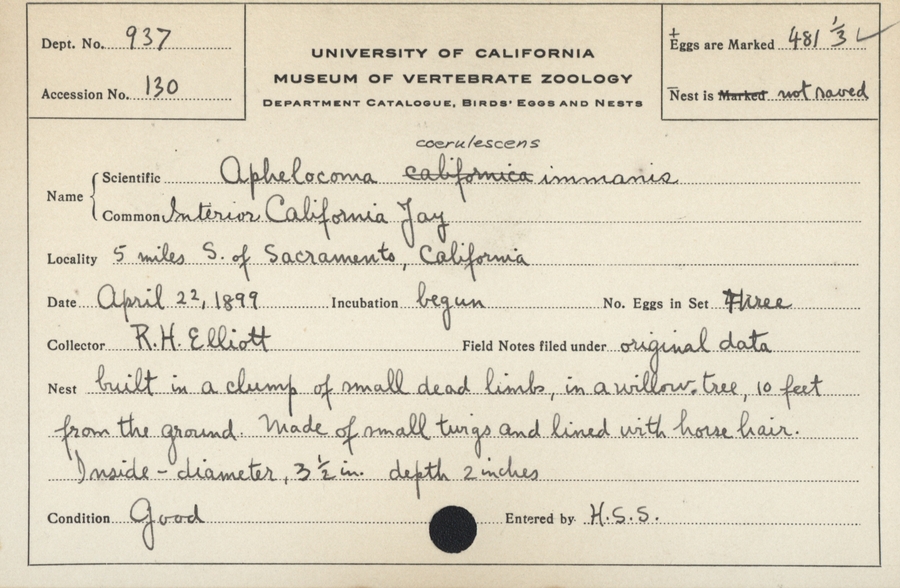 Dept. No. 937
Accession No. 130
UNIVERSITY OF CALIFORNIA
MUSEUM OF VERTEBRATE ZOOLOGY
DEPARTMENT CATALOGUE, BIRDS' EGGS AND NESTS
Eggs are Marked 481 1/3
Nest is Marked not saved
coerulescens
Name
Scientific Aphelocoma californica immanis
Common Interior California Jay
Locality 5 miles S. of Sacramento, California
Date April 22, 1899 Incubation begun No. Eggs in Set three
Collector R.H. Elliott Field Notes filed under original data
Nest built in a clump of small dead limbs, in a willow-tree, 10 feet
from the ground. Made of small twigs and lined with horse hair.
Inside - diameter, 3 1/2 in. depth 2 inches
Condition Good Entered by H.S.S.